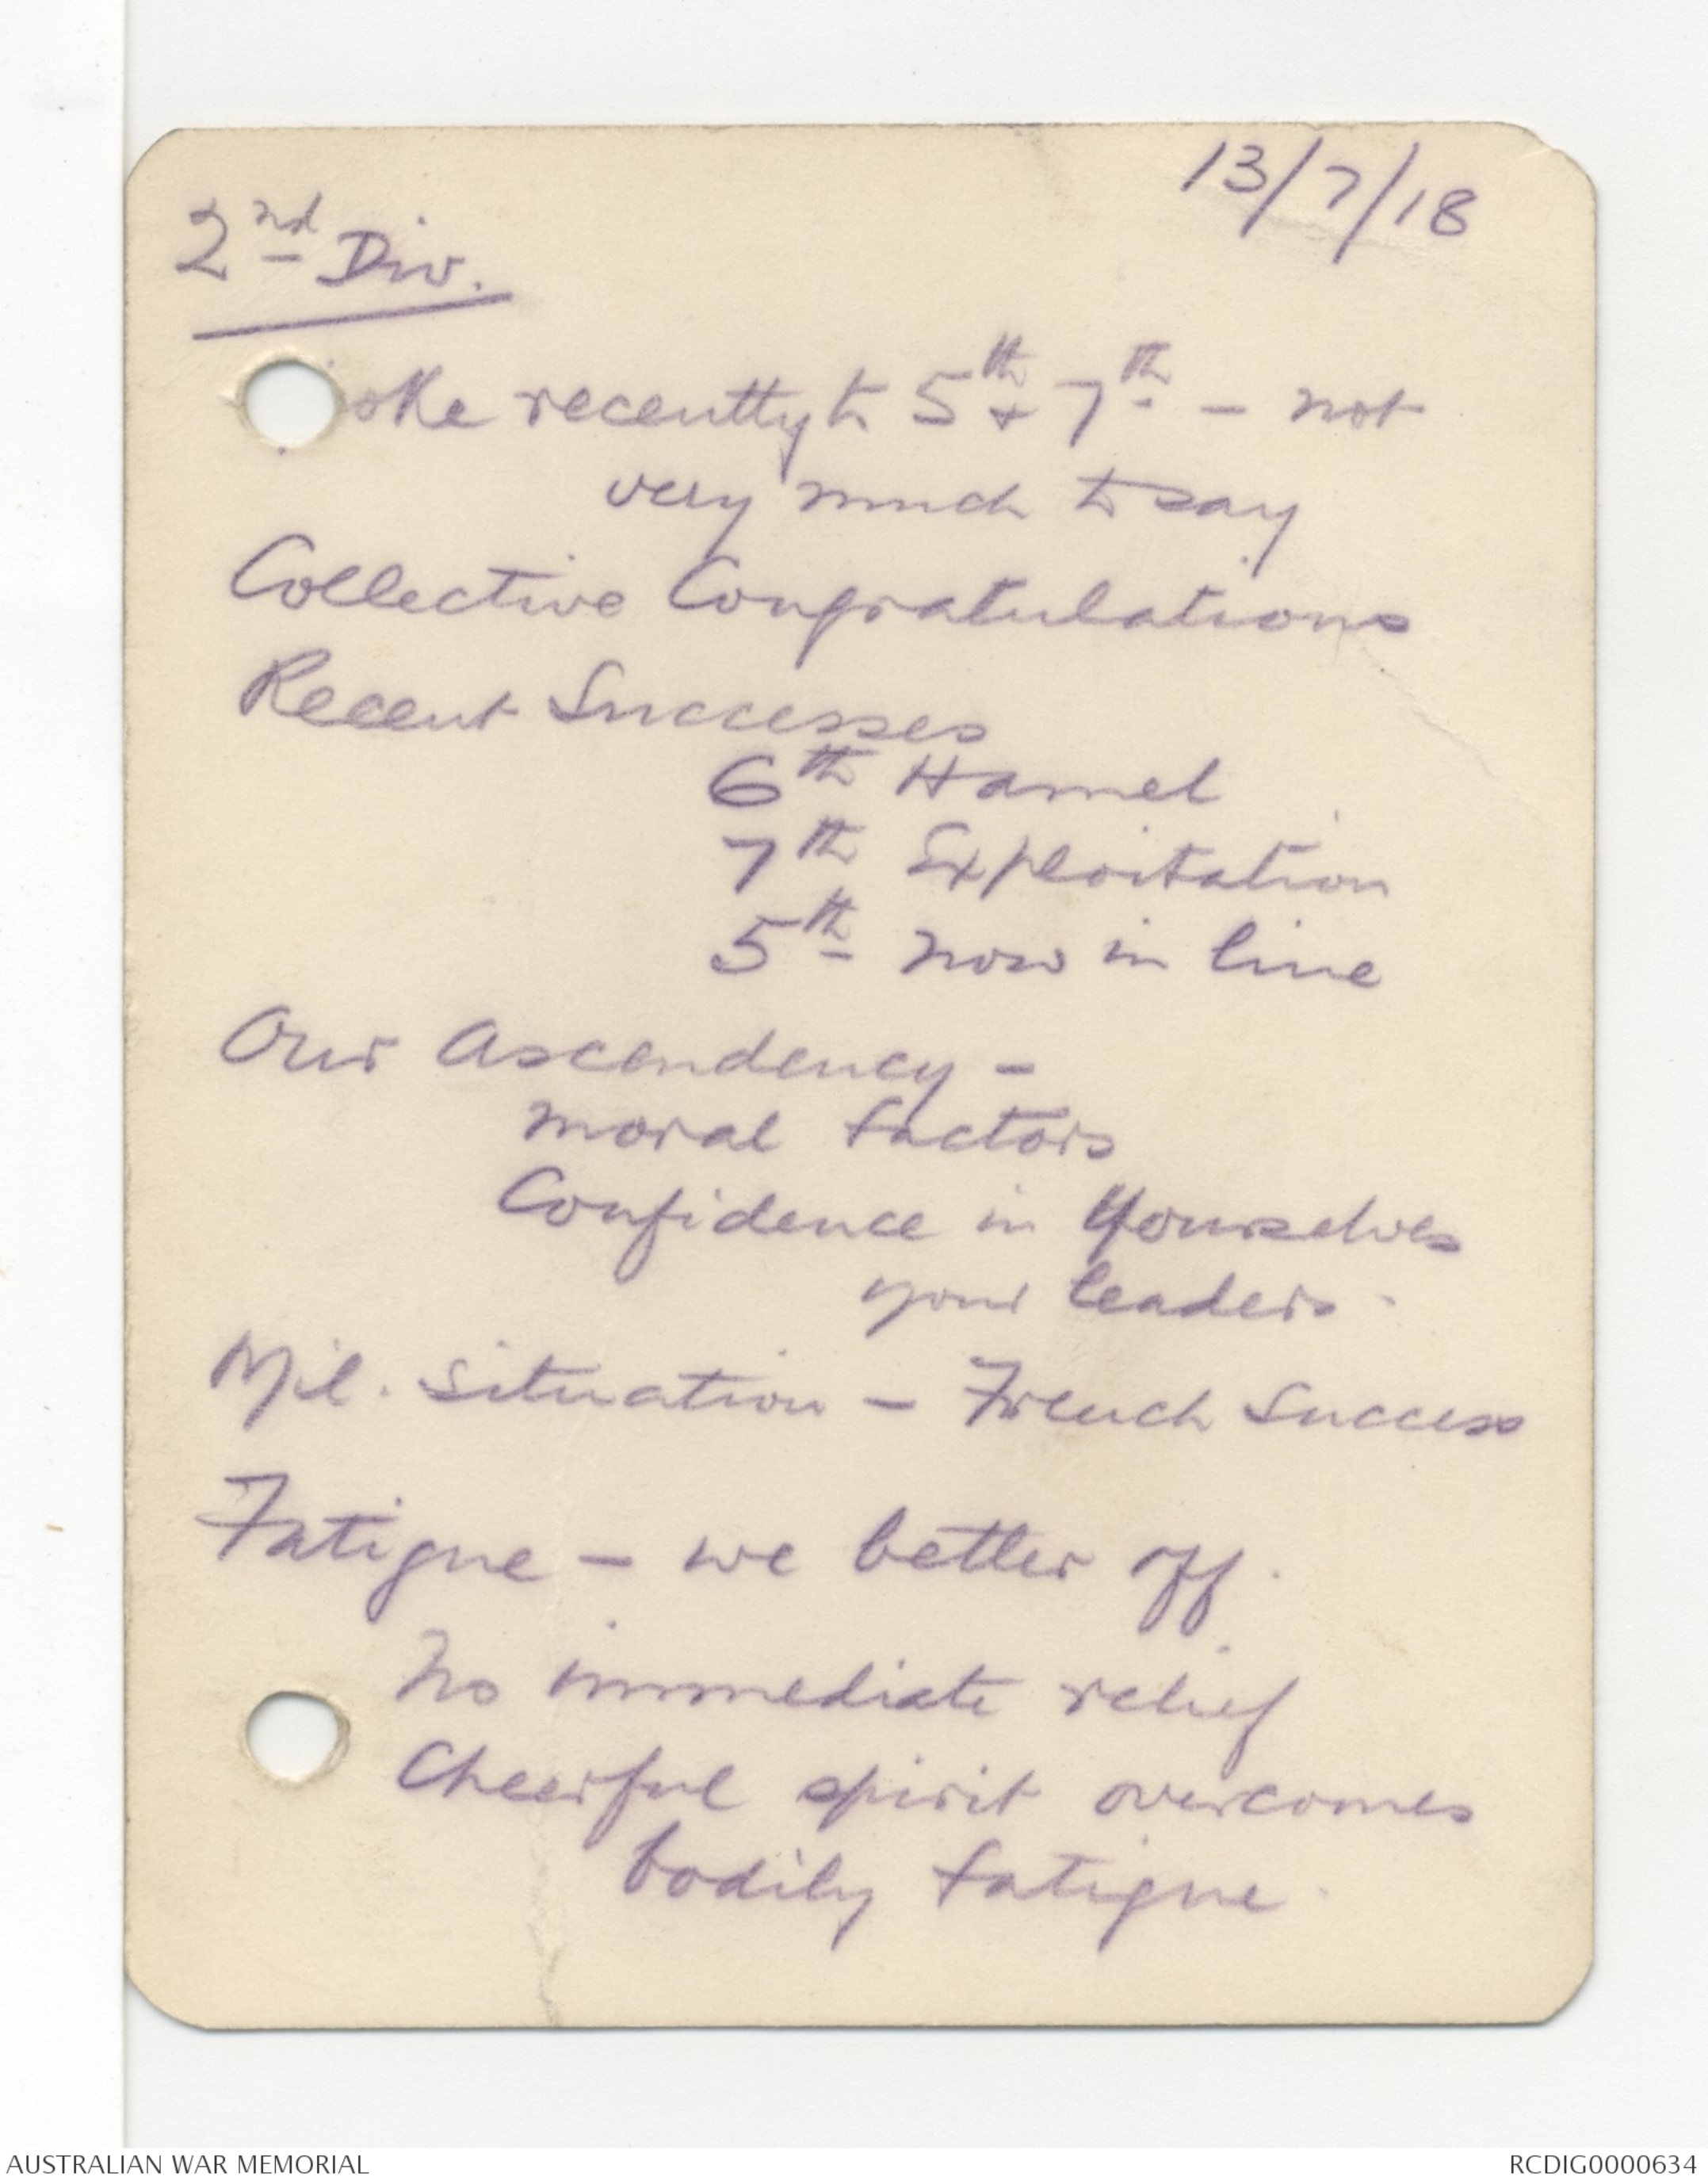 13/7/18
2nd Div.
oke recently to 5th + 7th – not
very much to say
Collective Congratulations
Recent Successes
6th Hamel
7th Exploitation
5th now in line
Our Ascendency –
moral factors
Confidence in Yourselves
your leaders.
Mil. Situation – French Success
Fatigue – we better off.
No immediate relief
Cheerful spirit overcomes
bodily fatigue.
AUSTRALIAN WAR MEMORIAL
RCDIG0000634